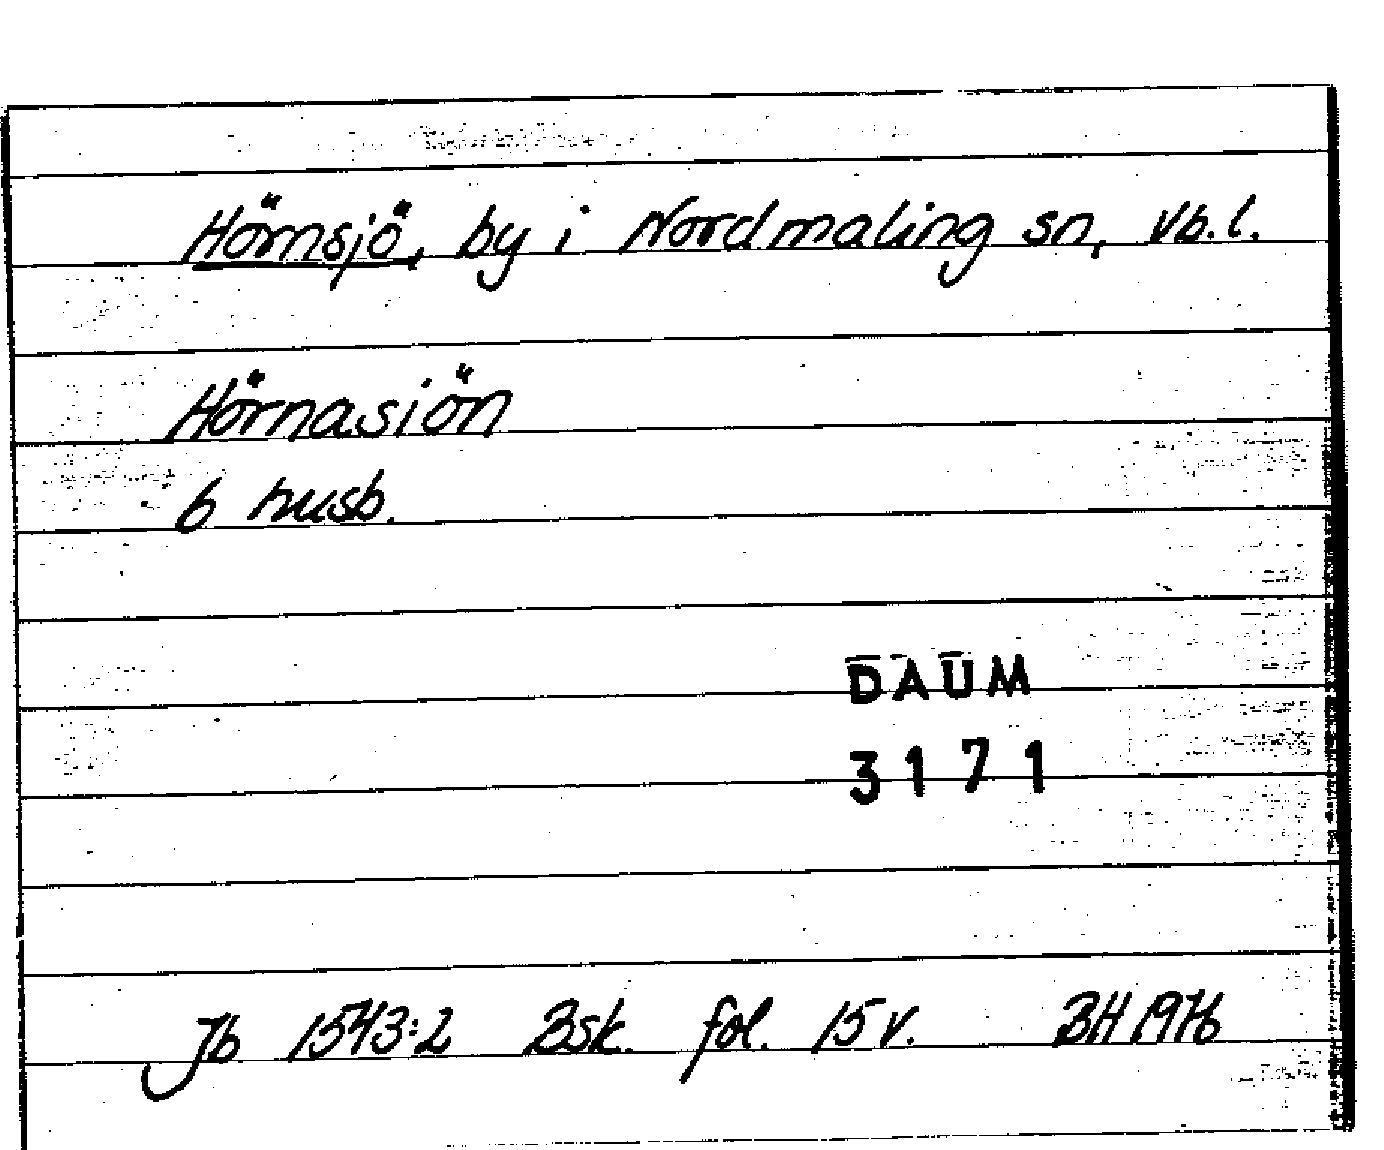 Hörnsjö, by i Nordmaling sn, Vb.l.
Hörnasiön
6 husb.
DAUM
3171
Jb 1543:2 Bsk. fol. 15 v. BH 1976